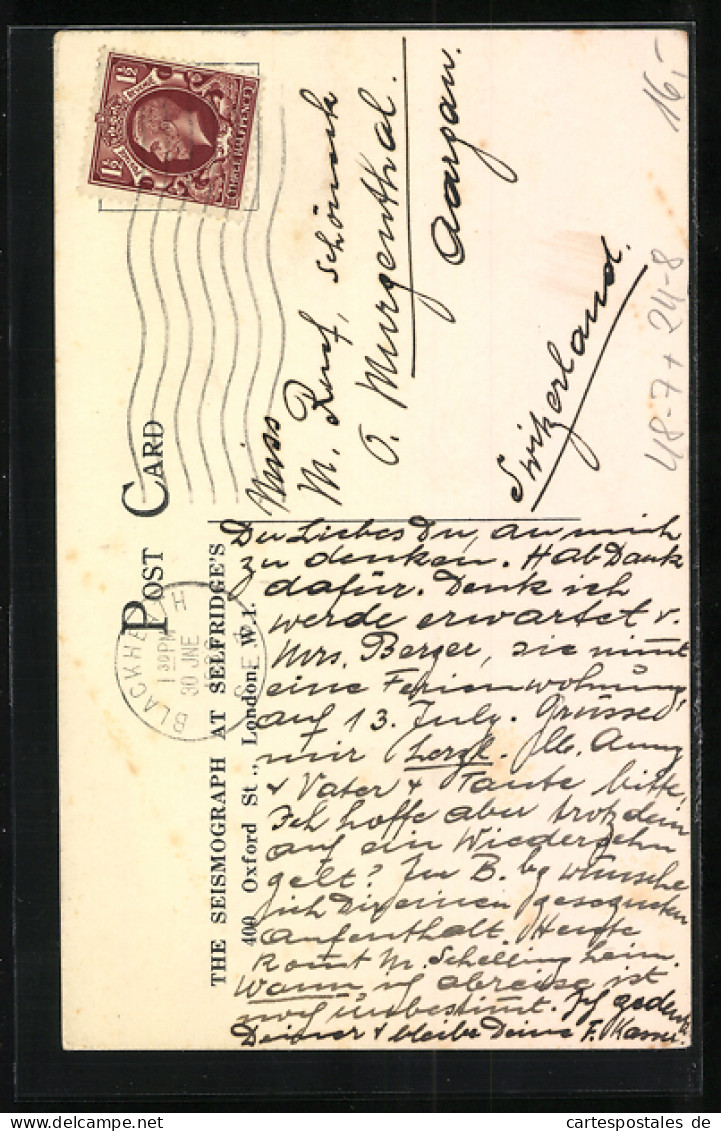 POST CARD
THE SEISMOGRAPH AT SELFRIDGE'S
400 Oxford St., London W.1.
1½ 1½
POSTAGE REVENUE
THREE HALFPENCE
BLACKHEATH
1 30 PM
30 JNE
S.E.3
Miss
M. Ruf, Schönck
O. Murgenthal.
Aargau.
Switzerland.
16,-
48-7+24-8
Du Liebes Du, an mich
zu denken. Hab Dank
dafür. Denk ich
werde erwartet v.
Mrs. Berger, sie nimt
eine Ferienwohnung,
auf 13. July. Grüsse
mir herzl. lb. Anny
+ Vater + Tante bitte,
Ich hoffe aber trotzdem
auf ein Wiedersehn
gelt? In B.bg wünsche
ich Dir einen gesegneten
Aufenthalt. Heute
komt M. Schelling heim.
Wann ich abreise ist
noch unbestimt. Ich gedenk
Deiner + bleibe Deine F.
www.cartespostales.eu
cartespostales de